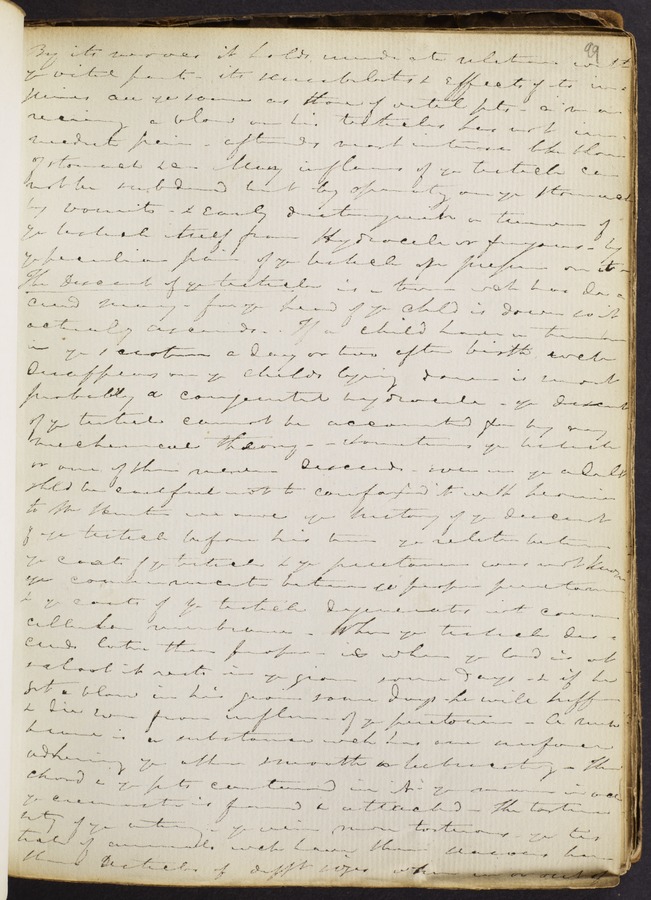 99
By its nerves it holds immediate relation with
ye vital parts - its sensibility & effects of its
are ye same as those of vital pts - a man
receiving a blow on his testicles has not imme-
mediate pain - afterwds most intense like those
of stomach &c Many inflams of ye testicle can
not be subdued but by operating on ye stomach
by vomits - & easily distinguish a tumour of
ye testicle itself from Hydrocele or fungous - by
ye peculiar pain of ye testicle on pressure on it
The Descent of ye testicle is a term wch has de-
ceived many - for ye head of ye child is down so it
actually ascends. If a child have a tumour
in ye scrotum a day or two after birth wch
disappears on ye childs lying down is most
probably a congenital hydrocele - ye descent
of ye testicle cannot be accounted for by any
mechanical theory - sometimes ye testicle
or one of them never descends - even in ye adult
shld be careful not to confound it with hernia
to Mr Hunter we owe ye history of ye descent
of ye testicle before his time ye relation between
ye coats of ye testicle & ye peritoneum was not known
ye communication between ye proper peritoneum
& ye coats of ye testicle degenerates into common
cellular membrane - When ye testicle des-
cends later than proper - ie when ye lad is at
school it rests in ye groin some days - & if he
get a blow in his groin some days he will suffer
& die soon from inflam of ye peritoneum - A mem
brane is a substance wch has one surface
adhering ye other smooth & lubricating - The
chord & ye pts contained in it
ye cremaster is found & attached - The tortuo
sity of ye artery - ye vein more tortuous - ye tes
ticle of animals wch have their seasons have
their testicles of difft sizes when in or out of